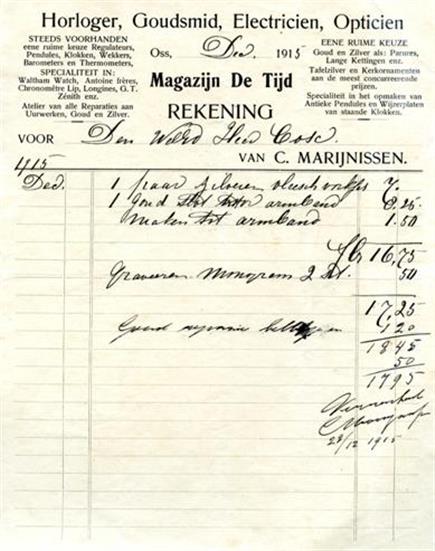 Horloger, Goudsmid, Electricien, Opticien
STEEDS VOORHANDEN
eene ruime keuze Regulateurs,
Pendules, Klokken, Wekkers,
Barometers en Thermometers,
SPECIALITEIT IN:
Waltham Watch, Antoine frères,
Chronomêtre Lip, Longines, G. T.
Zénith enz.
Atelier van alle Reparaties aan
Uurwerken, Goud en Zilver.
Oss, Dec. 1915
Magazijn De Tijd
REKENING
EENE RUIME KEUZE
Goud en Zilver als: Parures,
Lange Kettingen enz.
Tafelzilver en Kerkornamenten
aan de meest concurreerende
prijzen.
Specialiteit in het opmaken van
Antieke Pendules en Wijzerplaten
van staande Klokken.
VOOR Den Weled Heer
VAN C. MARIJNISSEN.
1915
Dec. 1 paar zilveren 7.
1 Goud slot voor armband 8.25
Maken tot armband 1.50
16,75
Graveeren Monogram 2 50
17,25
Goud reparatie 1,20
18,45
50
17,95
23/12 1915